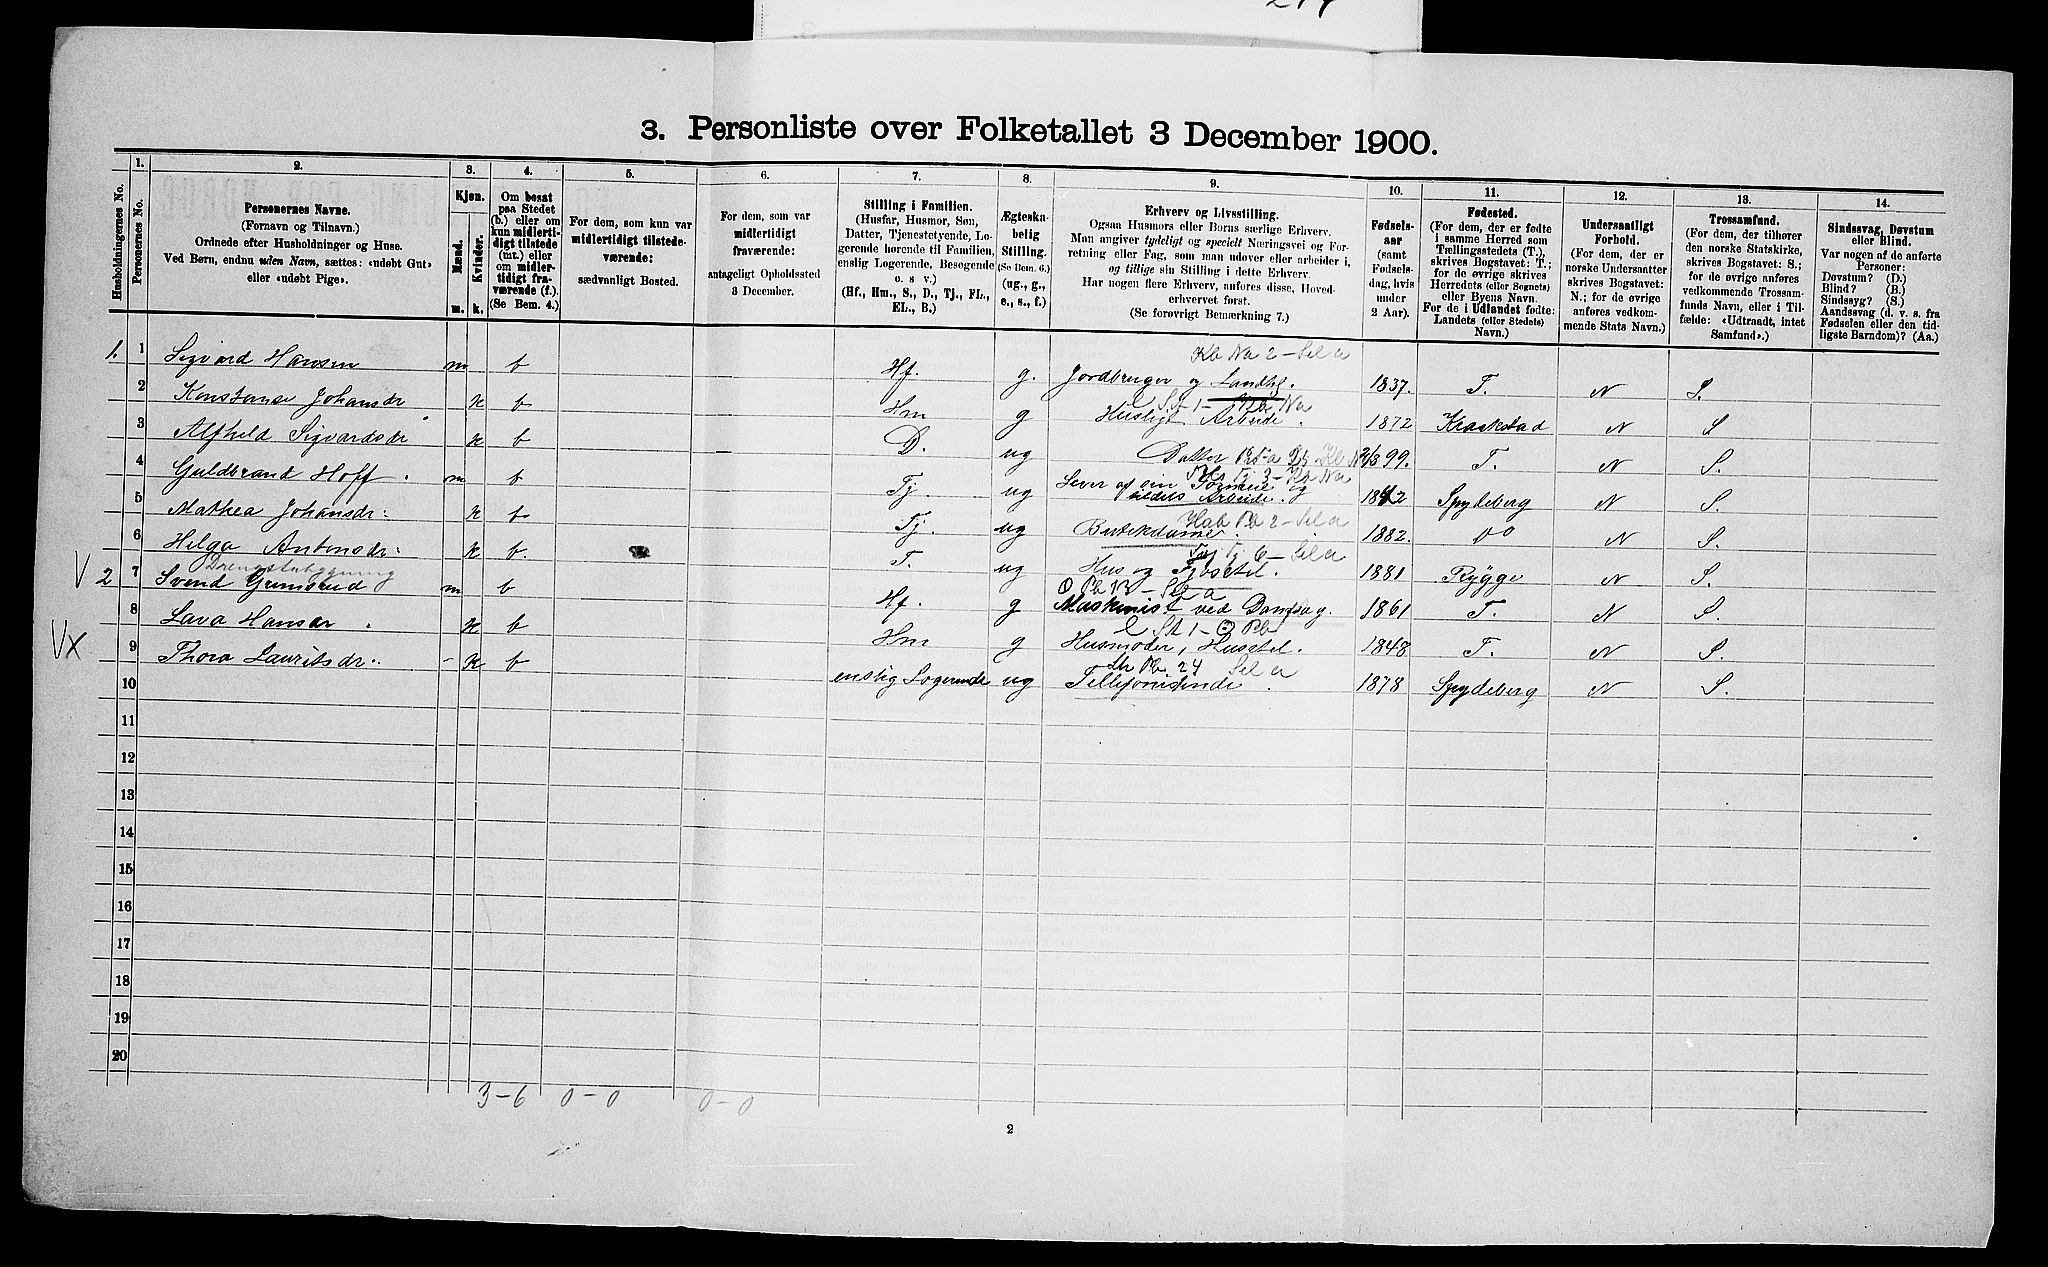 3. Personliste over Folketallet 3 December 1900.
Husholdningernes No.
1.
Personernes No.
2.
Personernes Navne.
(Fornavn og Tilnavn.)
Ordnede efter Husholdninger og Huse.
Ved Børn, endnu uden Navn, sættes: «udøbt Gut»
eller «udøbt Pige».
3.
Kjøn.
Mænd.
Kvinder.
m. k.
4.
Om bosat
paa Stedet
(b.) eller om
kun midlerti-
digt tilstede
(mt.) eller
om midler-
tidigt fra-
værende (f.).
(Se Bem. 4.)
5.
For dem, som kun var
midlertidigt tilstede-
værende:
sædvanligt Bosted.
6.
For dem, som var
midlertidigt
fraværende:
antageligt Opholdssted
3 December.
7.
Stilling i Familien.
(Husfar, Husmor, Søn,
Datter, Tjenestetyende, Lo-
gerende hørende til Familien,
enslig Logerende, Besøgende
o. s v.)
(Hf., Hm., S., D., Tj., FL.,
EL., B.)
8.
Ægteska-
belig
Stilling.
(Se Bem. 6.)
(ug., g.,
e., s., f.)
9.
Erhverv og Livsstilling.
Ogsaa Husmors eller Børns særlige Erhverv.
Man angiver tydeligt og specielt Næringsvei og For-
retning eller Fag, som man udøver eller arbeider i,
og tillige sin Stilling i dette Erhverv.
Har nogen flere Erhverv, anføres disse, Hoved-
erhvervet først.
(Se forøvrigt Bemærkning 7.)
10.
Fødsels-
aar
(samt
Fødsels-
dag, hvis
under
2 Aar).
11.
Fødested.
(For dem, der er fødte
i samme Herred som
Tællingsstedets (T.),
skrives Bogstavet: T.;
for de øvrige skrives
Herredets (eller Sognets)
eller Byens Navn.
For de i Udlandet fødte:
Landets (eller Stedets)
Navn.)
12.
Undersaatligt
Forhold.
(For dem, der er
norske Undersaatter
skrives Bogstavet:
N.; for de øvrige
anføres vedkom-
mende Stats Navn.)
13.
Trossamfund.
(For dem, der tilhører
den norske Statskirke,
skrives Bogstavet: S.;
for de øvrige anføres
vedkommende Trossam-
funds Navn, eller i Til-
fælde: «Udtraadt, intet
Samfund».)
14.
Sindssvag, Døvstum
eller Blind.
Var nogen af de anførte
Personer:
Døvstum? (D.)
Blind? (B.)
Sindssyg? (S.)
Aandssvag (d. v. s. fra
Fødselen eller den tid-
ligste Barndom)? (Aa.)
Kb Na 2 – Sel a
1. 1 Sigvard Hansen m b Hf. g. Jordbruger og Landh. 1837. T. N S.
2 Konstanse Johansdr k b Hm g Husligt Arbeide. 1872 Kraakstad N S
3 Alfhild Sigvardsdr k b D. ug Datter 2/3 99. T. N S.
4 Guldbrand Hoff. m b Tj. ug Lever af sin Formue og
tildels Arbeide. 1842 Spydeberg N S.
5 Mathea Johansdr: k b Tj. ug Butikdame. 1882. do N S.
6 Helga Antonsdr: k b. T. ug Hus og Fjøsstel. 1881 Rygge N S.
Drengstubygning
V 2 7 Svend Grimsrud m b Hf. g Maskinist ved Dampsag. 1861 T. N S.
8 Lava Hansdr. k b Hm g Husmoder, Husstel. 1848 T. N S.
Vx 9 Thora Lauritsdr: – k b enslig Logerende ug Tellefonistinde. 1878 Spydeberg N S.
10
11
12
13
14
15
16
17
18
19
20
3–6 0–0 0–0
2